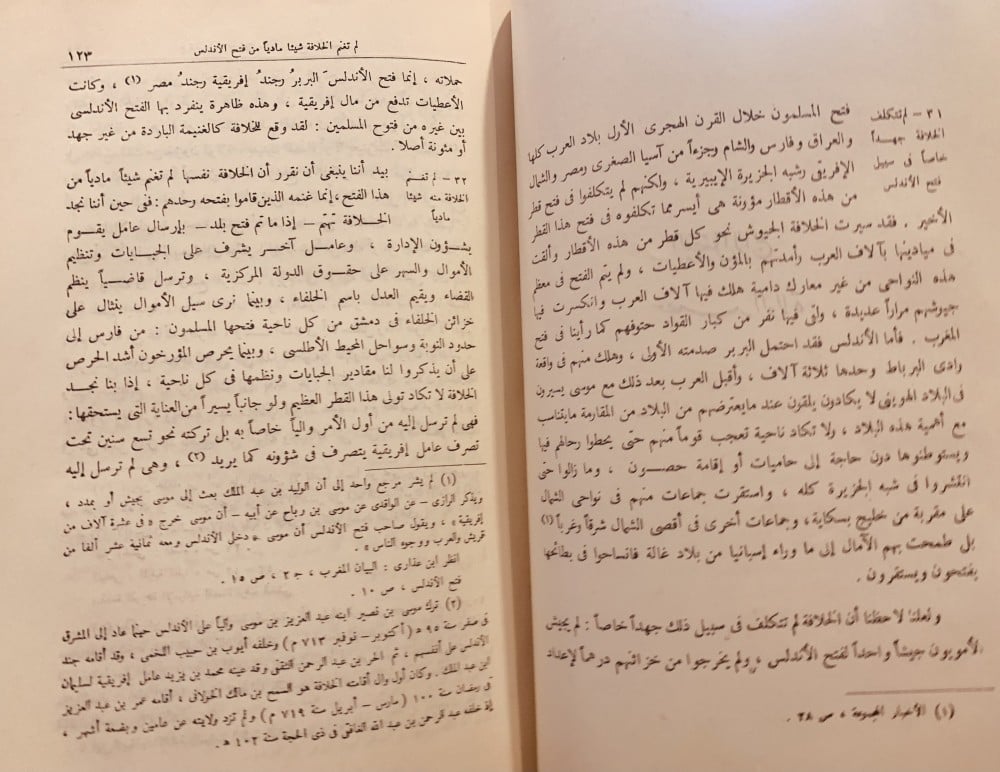 ٣١ – لم تتكلف
الخلافة جهداً
خاصاً فى سبيل
فتح الأندلس
فتح المسلمون خلال القرن الهجرى الأول بلاد العرب كلها
والعراق وفارس والشام وجزءاً من آسيا الصغرى ومصر والشمال
الإفريقى وشبه الجزيرة الإيبيرية ، ولكنهم لم يتكلفوا فى فتح قطر
من هذه الأقطار مؤونة هى أيسر مما تكلفوه فى فتح هذا القطر
الأخير . فقد سيرت الخلافة الجيوش نحو كل قطر من هذه الأقطار وألقت
فى ميادينها بآلاف العرب وأمدتهم بالمؤن والأعطيات ، ولم يتم الفتح فى معظم
هذه النواحى من غير معارك دامية هلك فيها آلاف العرب وانكسرت فيها
جيوشهم مراراً عديدة ، ولقى فيها نفر من كبار القواد حتوفهم كما رأينا فى فتح
المغرب . فأما الأندلس فقد احتمل البربر صدمته الأولى ، وهلك منهم فى واقعة
وادى البرباط وحدها ثلاثة آلاف ، وأقبل العرب بعد ذلك مع موسى يسيرون
فى البلاد الهوينى لا يكادون يلقون عند مايعترضهم من البلاد من المقاومة مايتناسب
مع أهمية هذه البلاد ، ولا تكاد ناحية تعجب قوماً منهم حتى يحطوا رحالهم فيها
ويستوطنوها دون حاجة إلى حاميات أو إقامة حصون ، وما زالوا حتى
انتشروا فى شبه الجزيرة كله ، واستقرت جماعات منهم فى نواحى الشمال
على مقربة من خليج بسكاية، وجماعات أخرى فى أقصى الشمال شرقاً وغرباً (١)
بل طمحت بهم الآمال إلى ما وراء إسبانيا من بلاد غالة فانساحوا فى بطائحها
يفتحون ويستقرون .
ولعلنا لاحظنا أن الخلافة لم تتكلف فى سبيل ذلك جهداً خاصاً : لم يجيش
الأمويون جيشاً واحداً لفتح الأندلس ، ولم يخرجوا من خزائنهم درهماً لإعداد
(١) الأخبار المجموعة ، ص ٢٨ .
لم تغنم الخلافة شيئا مادياً من فتح الأندلس
١٢٣
حملاته ، إنما فتح الأندلسَ البربرُ وجندُ إفريقية وجندُ مصر (١) ، وكانت
الأعطيات تدفع من مال إفريقية ، وهذه ظاهرة ينفرد بها الفتح الأندلسى
بين غيره من فتوح المسلمين : لقد وقع للخلافة كالغنيمة الباردة من غير جهد
أو مئونة أصلا .
٣٢ – لم تغنم
الخلافة منه شيئا
مادياً
بيد أننا ينبغى أن نقرر أن الخلافة نفسها لم تغنم شيئاً مادياً من
هذا الفتح ، إنما غنمه الذين قاموا بفتحه وحدهم : فى حين أننا نجد
الخلافة تهتم – إذا ما تم فتح بلد – بإرسال عامل يقوم
بشؤون الإدارة ، وعامل آخر يشرف على الجبايات وتنظيم
الأموال والسهر على حقوق الدولة المركزية ، وترسل قاضياً ينظم
القضاء ويقيم العدل باسم الخلفاء ، وبينما نرى سيل الأموال ينثال على
خزائن الخلفاء فى دمشق من كل ناحية فتحها المسلمون : من فارس إلى
حدود النوبة وسواحل المحيط الأطلسى ، وبينما يحرص المؤرخون أشد الحرص
على أن يذكروا لنا مقادير الجبايات ونظمها فى كل ناحية ، إذا بنا نجد
الخلافة لا تكاد تولى هذا القطر العظيم ولو جانباً يسيراً من العناية التى يستحقها :
فهى لم ترسل إليه من أول الأمر والياً خاصاً به بل تركته نحو تسع سنين تحت
تصرف عامل إفريقية يتصرف فى شؤونه كما يريد (٢) ، وهى لم ترسل إليه
(١) لم يشر مرجع واحد إلى أن الوليد بن عبد الملك بعث إلى موسى بجيش أو بمدد ،
ويذكر الرازى – عن الواقدى عن موسى بن رباح عن أبيه – أن موسى خرج « فى عشرة آلاف من
إفريقية » ، ويقول صاحب فتح الأندلس أن موسى « دخل الأندلس ومعه ثمانية عشر ألفا من
قريش والعرب ووجوه الناس » .
انظر ابن عذارى : البيان المغرب ، ج ٢ ، ص ١٥ .
فتح الأندلس ، ص ١٠ .
(٢) ترك موسى بن نصير ابنه عبد العزيز بن موسى والياً على الأندلس حينما عاد إلى المشرق
فى صفر سنة ٩٥ ه‍ ( أكتوبر – نوفمبر ٧١٣ م ) وخلفه أيوب بن حبيب اللخمى ، وقد أقامه جند
الأندلس على أنفسهم ، ثم الحر بن عبد الرحمن الثقفى وقد عينه محمد بن يزيد عامل إفريقية لسليمان
ابن عبد الملك . وكان أول وال أقامته الخلافة هو السمح بن مالك الخولانى ، أقامه عمر بن عبد العزيز
فى رمضان سنة ١٠٠ ( مارس – أبريل سنة ٧١٩ م ) ولم تزد ولايته عن عامين وبضعة أشهر ،
إذ خلفه عبد الرحمن بن عبد الله الغافقى فى ذى الحجة سنة ١٠٢ ه‍ .